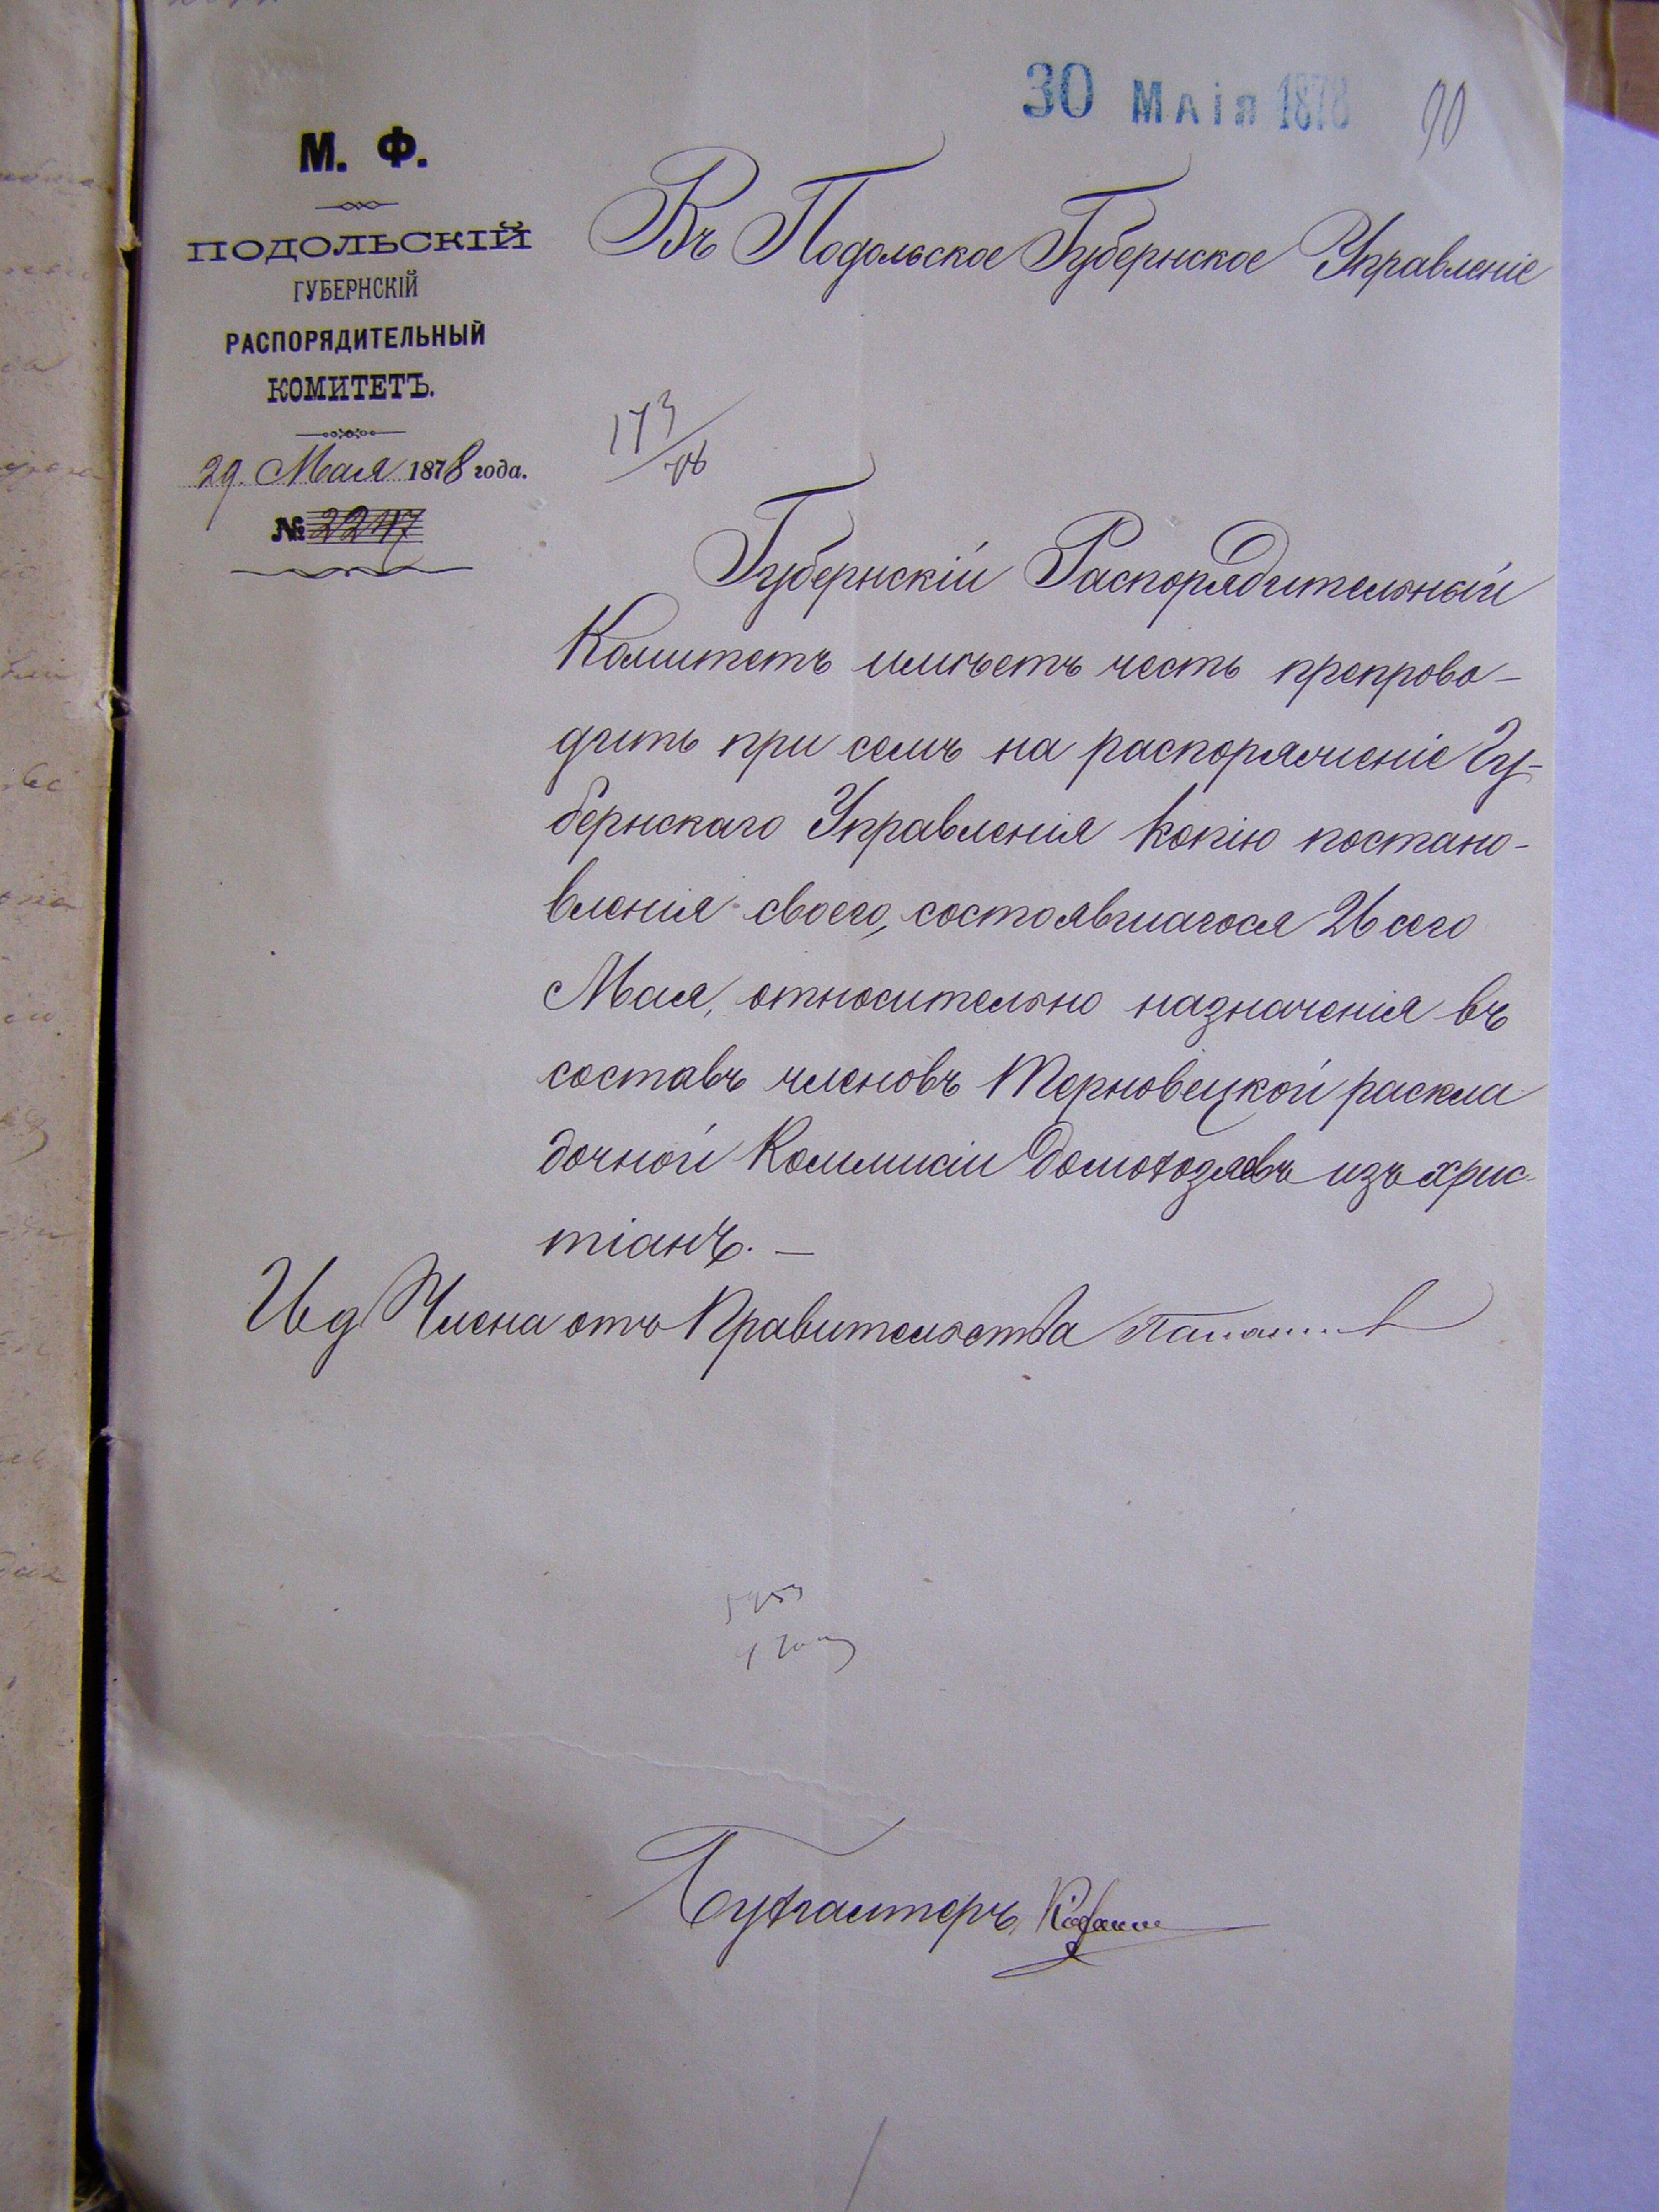 30 МАІЯ 1878
90
М. Ф.
ПОДОЛЬСКІЙ
ГУБЕРНСКІЙ
РАСПОРЯДИТЕЛЬНЫЙ
КОМИТЕТЪ.
29. Мая 1878 года.
№ 2247
Въ Подольское Губернское Управленіе
173/78
Губернскій Распорядительный
Комитетъ имѣетъ честь препрово-
дить при семъ на распоряженіе Гу-
бернскаго Управленія копію постано-
вленія своего, состоявшагося 26 сего
Мая, относительно назначенія въ
составъ членовъ Терновецкой раскла
дочной Коммисіи домохозяевъ изъ хрис-
тіанъ. —
Ид Члена отъ Правительства
Бухгалтеръ